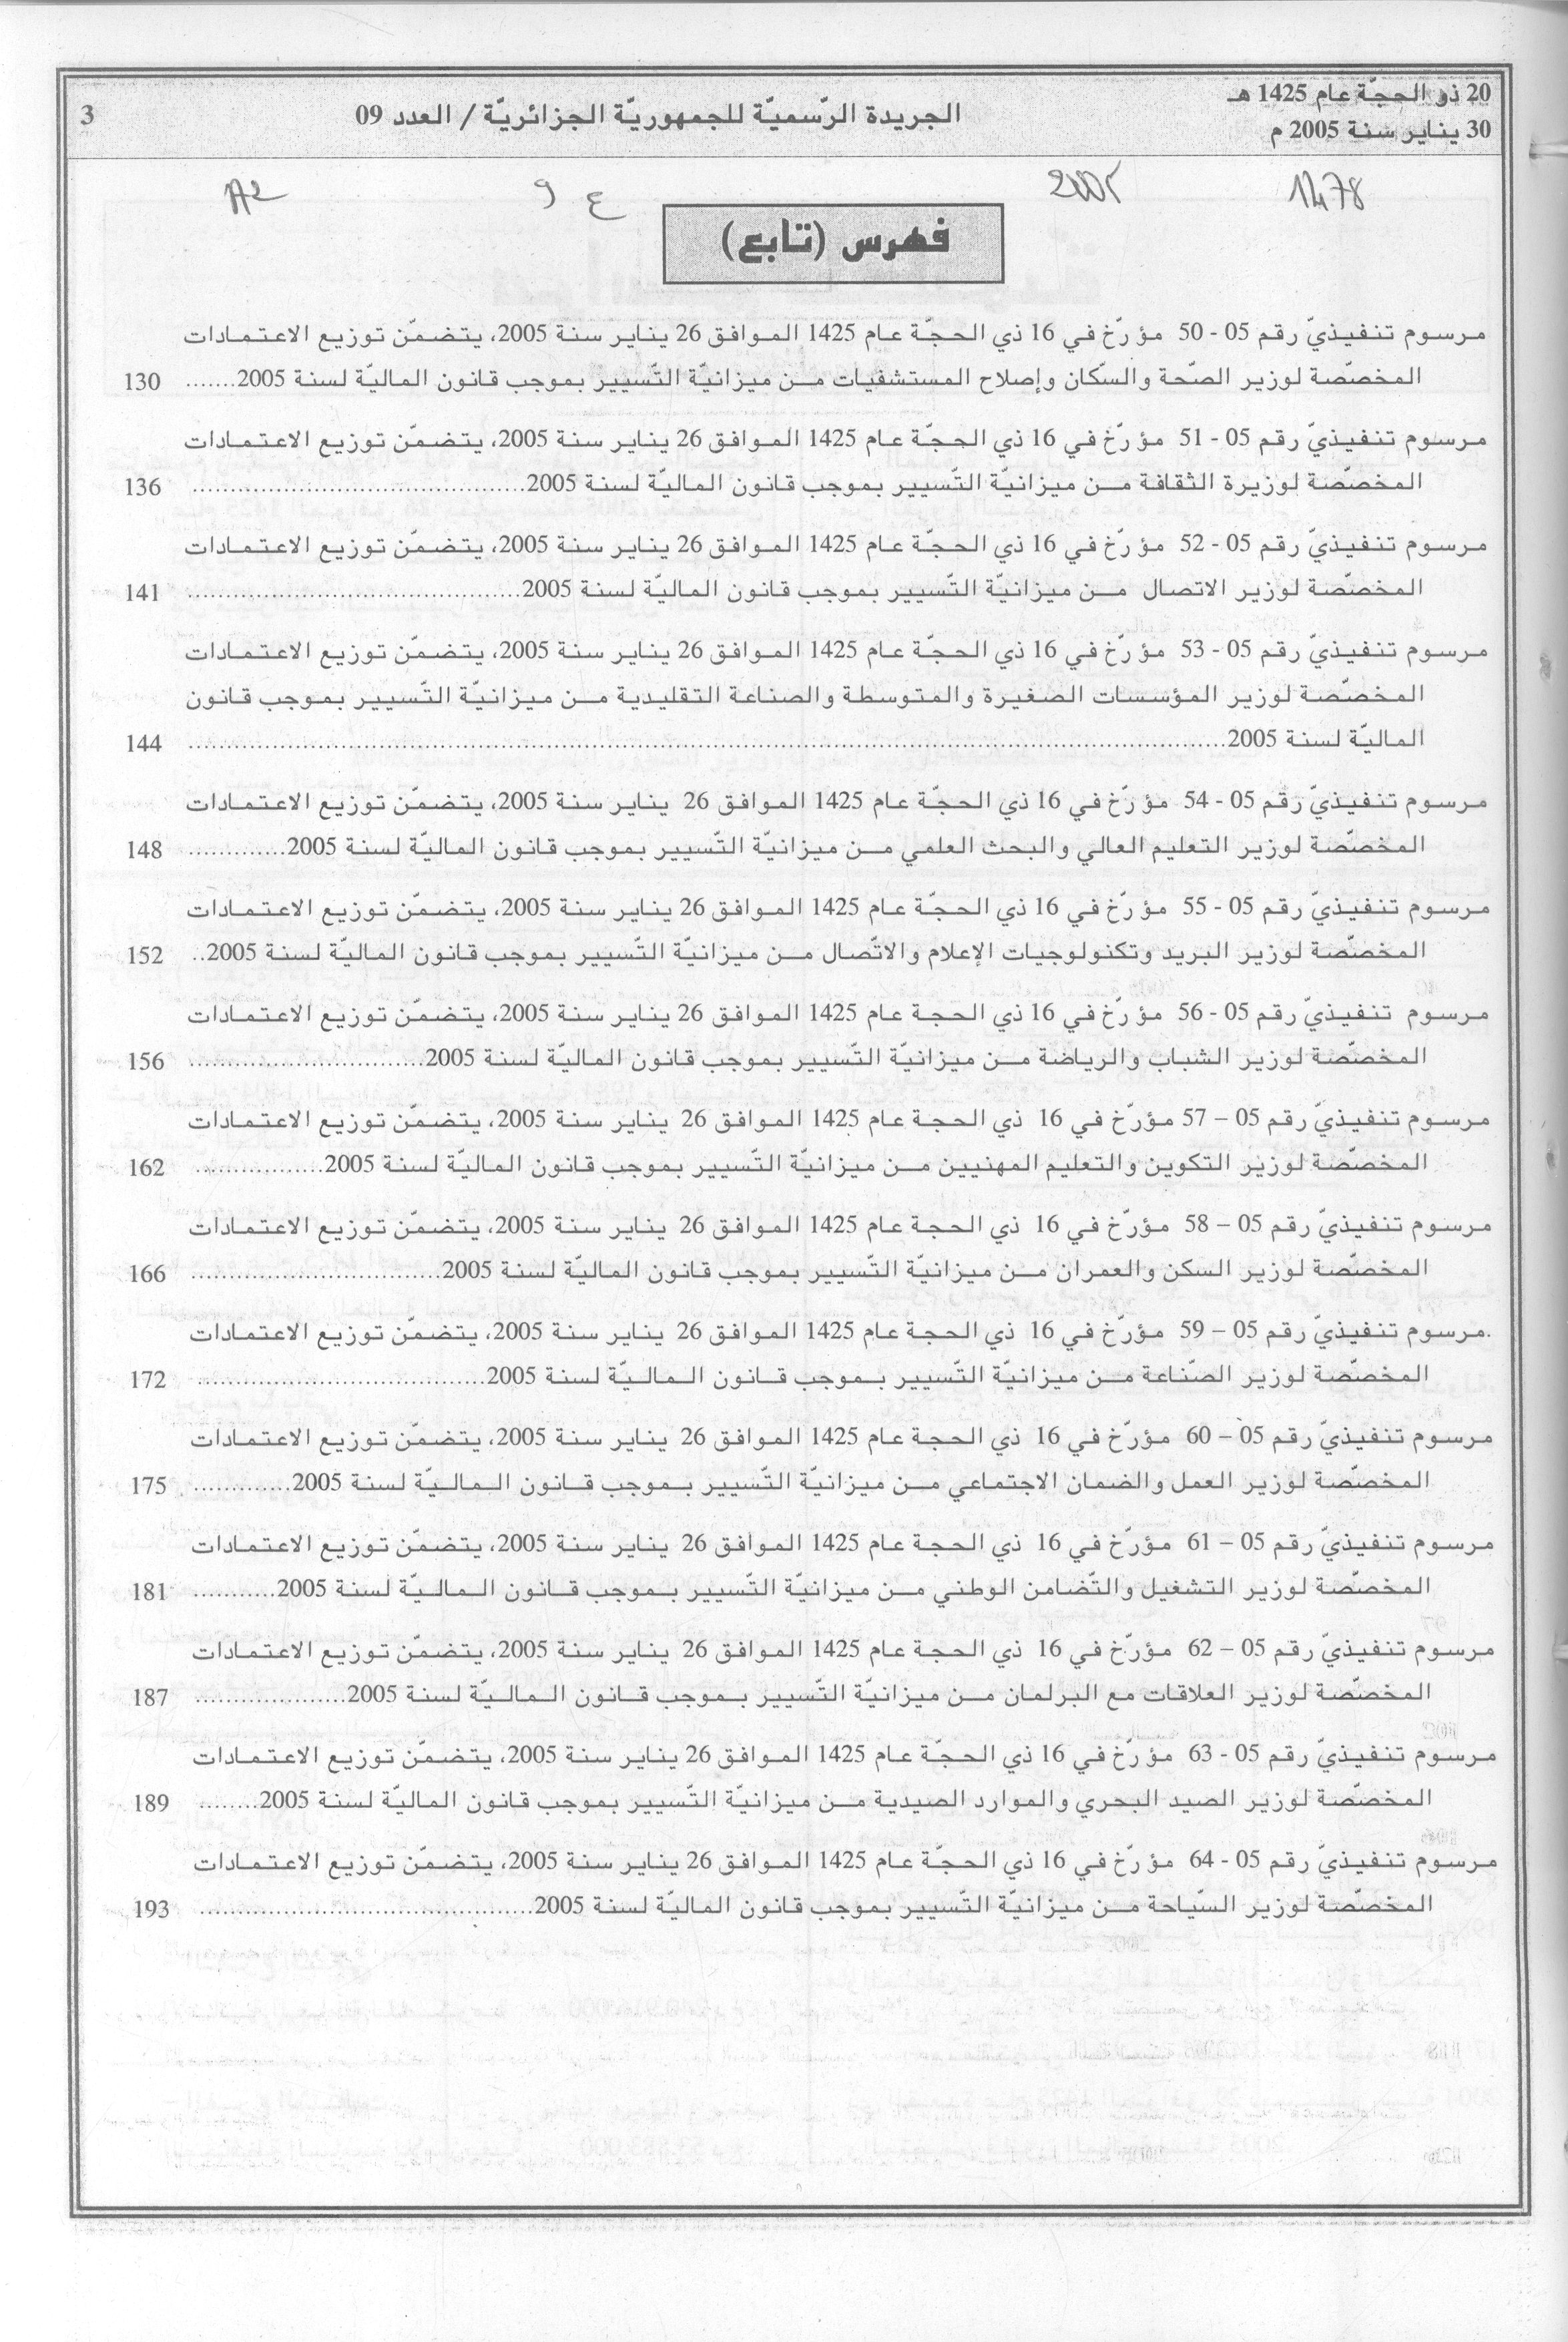 20 ذو الحجّة عام 1425 هـ
30 يناير سنة 2005 م
الجريدة الرّسميّة للجمهوريّة الجزائريّة / العدد 09
3
1478
2005
ع 9
A2
فهرس (تابع)
مرسوم تنفيذيّ رقم 05 - 50 مؤرّخ في 16 ذي الحجّة عام 1425 الموافق 26 يناير سنة 2005، يتضمّن توزيع الاعتمادات
المخصّصة لوزير الصّحة والسّكان وإصلاح المستشفيات من ميزانيّة التّسيير بموجب قانون الماليّة لسنة 2005....... 130
مرسوم تنفيذيّ رقم 05 - 51 مؤرّخ في 16 ذي الحجّة عام 1425 الموافق 26 يناير سنة 2005، يتضمّن توزيع الاعتمادات
المخصّصة لوزيرة الثقافة من ميزانيّة التّسيير بموجب قانون الماليّة لسنة 2005............................................ 136
مرسوم تنفيذيّ رقم 05 - 52 مؤرّخ في 16 ذي الحجّة عام 1425 الموافق 26 يناير سنة 2005، يتضمّن توزيع الاعتمادات
المخصّصة لوزير الاتصال من ميزانيّة التّسيير بموجب قانون الماليّة لسنة 2005............................................ 141
مرسوم تنفيذيّ رقم 05 - 53 مؤرّخ في 16 ذي الحجّة عام 1425 الموافق 26 يناير سنة 2005، يتضمّن توزيع الاعتمادات
المخصّصة لوزير المؤسسات الصغيرة والمتوسطة والصناعة التقليدية من ميزانيّة التّسيير بموجب قانون
الماليّة لسنة 2005........................................................................................................ 144
مرسوم تنفيذيّ رقم 05 - 54 مؤرّخ في 16 ذي الحجّة عام 1425 الموافق 26 يناير سنة 2005، يتضمّن توزيع الاعتمادات
المخصّصة لوزير التعليم العالي والبحث العلمي من ميزانيّة التّسيير بموجب قانون الماليّة لسنة 2005............. 148
مرسوم تنفيذيّ رقم 05 - 55 مؤرّخ في 16 ذي الحجّة عام 1425 الموافق 26 يناير سنة 2005، يتضمّن توزيع الاعتمادات
المخصّصة لوزير البريد وتكنولوجيات الإعلام والاتّصال من ميزانيّة التّسيير بموجب قانون الماليّة لسنة 2005.. 152
مرسوم تنفيذيّ رقم 05 - 56 مؤرّخ في 16 ذي الحجة عام 1425 الموافق 26 يناير سنة 2005، يتضمّن توزيع الاعتمادات
المخصّصة لوزير الشباب والرياضة من ميزانيّة التّسيير بموجب قانون الماليّة لسنة 2005............................... 156
مرسوم تنفيذيّ رقم 05 – 57 مؤرّخ في 16 ذي الحجة عام 1425 الموافق 26 يناير سنة 2005، يتضمّن توزيع الاعتمادات
المخصّصة لوزير التكوين والتعليم المهنيين من ميزانيّة التّسيير بموجب قانون الماليّة لسنة 2005................. 162
مرسوم تنفيذيّ رقم 05 – 58 مؤرّخ في 16 ذي الحجة عام 1425 الموافق 26 يناير سنة 2005، يتضمّن توزيع الاعتمادات
المخصّصة لوزير السكن والعمران من ميزانيّة التّسيير بموجب قانون الماليّة لسنة 2005................................. 166
مرسوم تنفيذيّ رقم 05 – 59 مؤرّخ في 16 ذي الحجة عام 1425 الموافق 26 يناير سنة 2005، يتضمّن توزيع الاعتمادات
المخصّصة لوزير الصّناعة من ميزانيّة التّسيير بموجب قانون الماليّة لسنة 2005...................................... 172
مرسوم تنفيذيّ رقم 05 – 60 مؤرّخ في 16 ذي الحجة عام 1425 الموافق 26 يناير سنة 2005، يتضمّن توزيع الاعتمادات
المخصّصة لوزير العمل والضمان الاجتماعي من ميزانيّة التّسيير بموجب قانون الماليّة لسنة 2005............. 175
مرسوم تنفيذيّ رقم 05 – 61 مؤرّخ في 16 ذي الحجة عام 1425 الموافق 26 يناير سنة 2005، يتضمّن توزيع الاعتمادات
المخصّصة لوزير التشغيل والتّضامن الوطني من ميزانيّة التّسيير بموجب قانون الماليّة لسنة 2005........... 181
مرسوم تنفيذيّ رقم 05 – 62 مؤرّخ في 16 ذي الحجة عام 1425 الموافق 26 يناير سنة 2005، يتضمّن توزيع الاعتمادات
المخصّصة لوزير العلاقات مع البرلمان من ميزانيّة التّسيير بموجب قانون الماليّة لسنة 2005.................... 187
مرسوم تنفيذيّ رقم 05 - 63 مؤرّخ في 16 ذي الحجّة عام 1425 الموافق 26 يناير سنة 2005، يتضمّن توزيع الاعتمادات
المخصّصة لوزير الصيد البحري والموارد الصيدية من ميزانيّة التّسيير بموجب قانون الماليّة لسنة 2005........ 189
مرسوم تنفيذيّ رقم 05 - 64 مؤرّخ في 16 ذي الحجّة عام 1425 الموافق 26 يناير سنة 2005، يتضمّن توزيع الاعتمادات
المخصّصة لوزير السّياحة من ميزانيّة التّسيير بموجب قانون الماليّة لسنة 2005............................................ 193